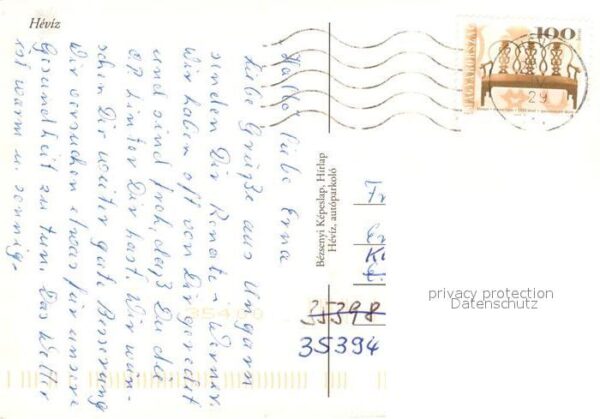 Hévíz
Hallo liebe Erna
Liebe Grüße aus Ungarn
senden Dir Renate u. Werner.
Wir haben oft von Dir geredet
und sind froh, daß Du die
OP hinter Dir hast. Wir wün-
schen Dir weiter gute Besserung
Wir versuchen etwas für unsere
Gesundheit zu tun. Das Wetter
ist warm u. sonnig.
Bézsenyi Képeslap, Hírlap
Hévíz, autóparkoló
MAGYARORSZÁG
100
29
35398
35394
35400
privacy protection
Datenschutz